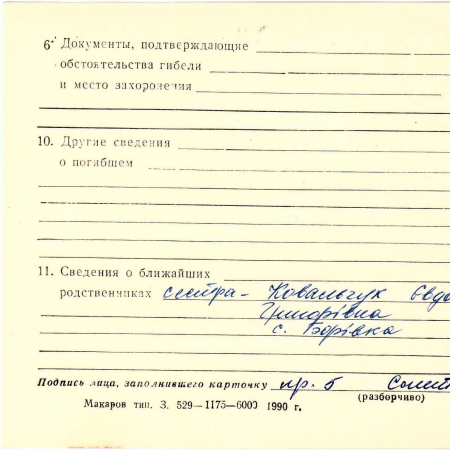 6. Документы, подтверждающие
обстоятельства гибели
и место захоронения
10. Другие сведения
о погибшем
11. Сведения о ближайших
родственниках сестра - Ковальчук
Григорівна
с. Борівка
Подпись лица, заполнившего карточку пр. б
(разборчиво)
Макаров тип. З. 529—1175—6000 1990 г.